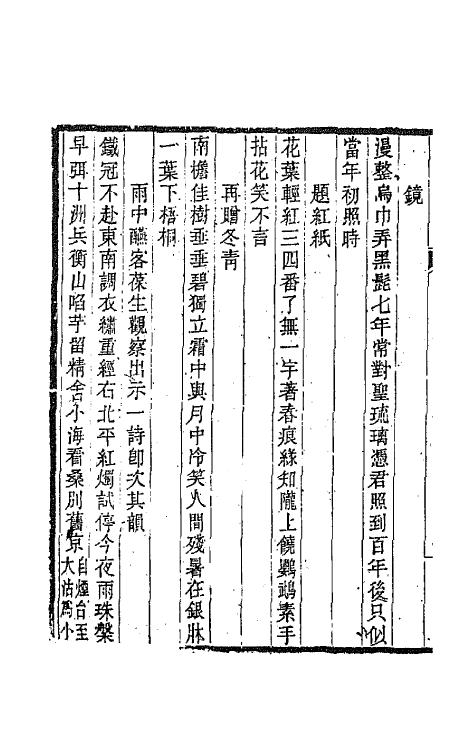 鏡
漫整烏巾弄黑髭七年常對聖琉璃憑君照到百年後只似
當年初照時
題紅紙
花葉輕紅三四番了無一字著春痕緣知隴上饒鸚鵡素手
拈花笑不言
再贈冬青
南檐佳樹垂垂碧獨立霜中與月中冷笑人間殘暑在銀牀
一葉下梧桐
雨中醼客葆生觀察出示一詩卽次其韻
鐵冠不赴東南調衣繡重經右北平紅燭試停今夜雨珠槃
早弭十洲兵衡山啗芋留精舍小海看桑別舊京自煙台至
大沽爲小